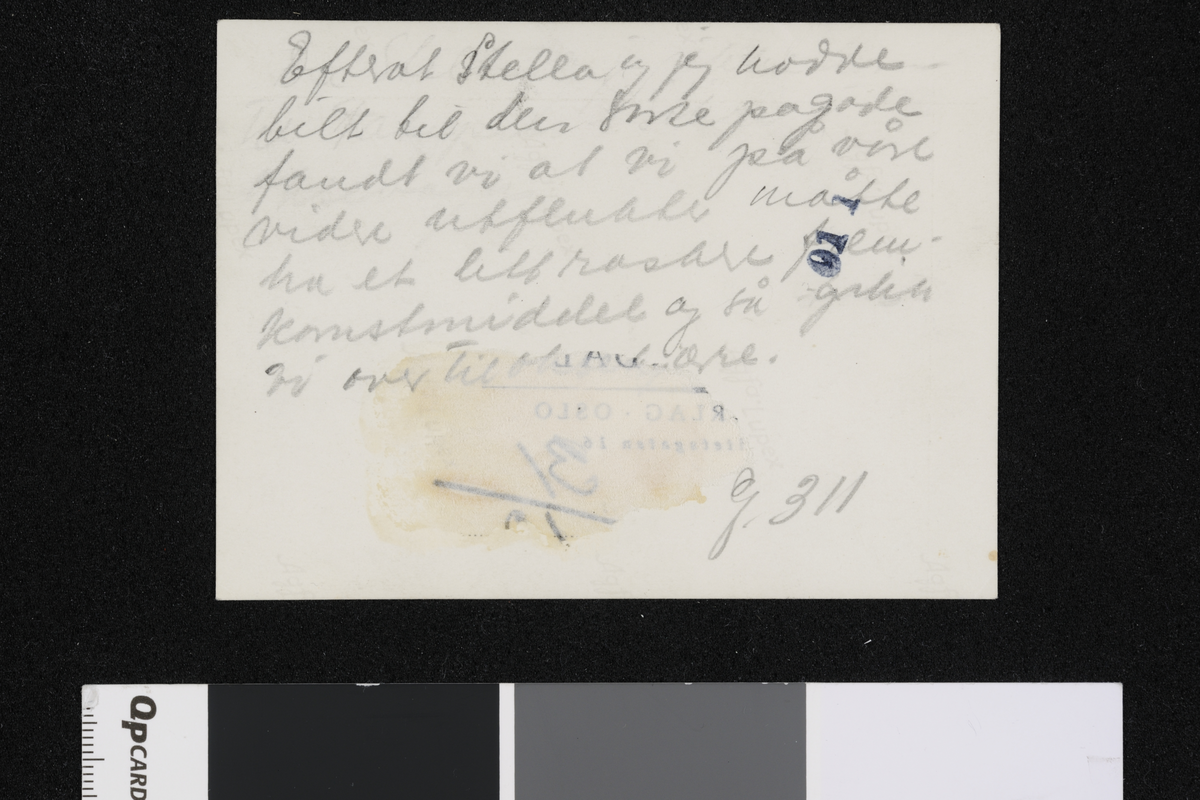 Efterat Stella og jeg hadde
bilt til den store pagode
fandt vi at vi på våre
videre utflukter måtte
ha et litt raskere frem-
komstmiddel og så gikk
vi over til
RLAG · OSLO
G. 311
QPCARD